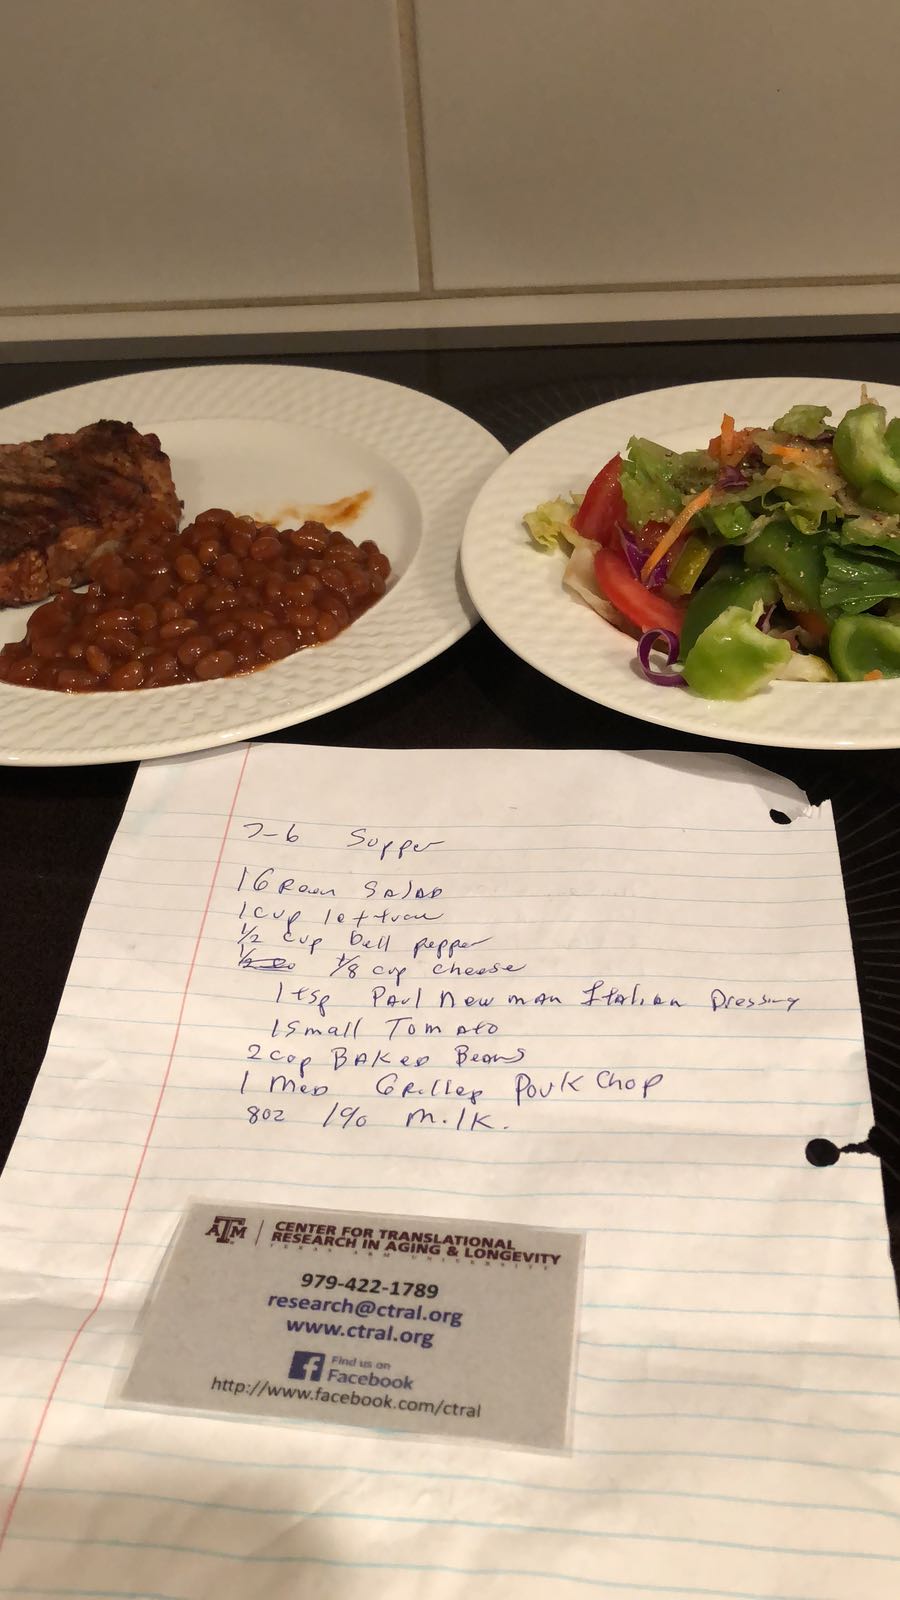 7-6 Supper
1 Green Salad
1 cup lettuce
1/2 cup bell pepper
1/8 cup cheese
1 tsp Paul Newman Italian Dressing
1 Small Tomato
2 cup BAKED BEANS
1 Med Grilled Pork Chop
8oz 1% Milk.
ATM CENTER FOR TRANSLATIONAL
RESEARCH IN AGING & LONGEVITY
TEXAS A&M UNIVERSITY
979-422-1789
research@ctral.org
www.ctral.org
f Find us on
Facebook
http://www.facebook.com/ctral